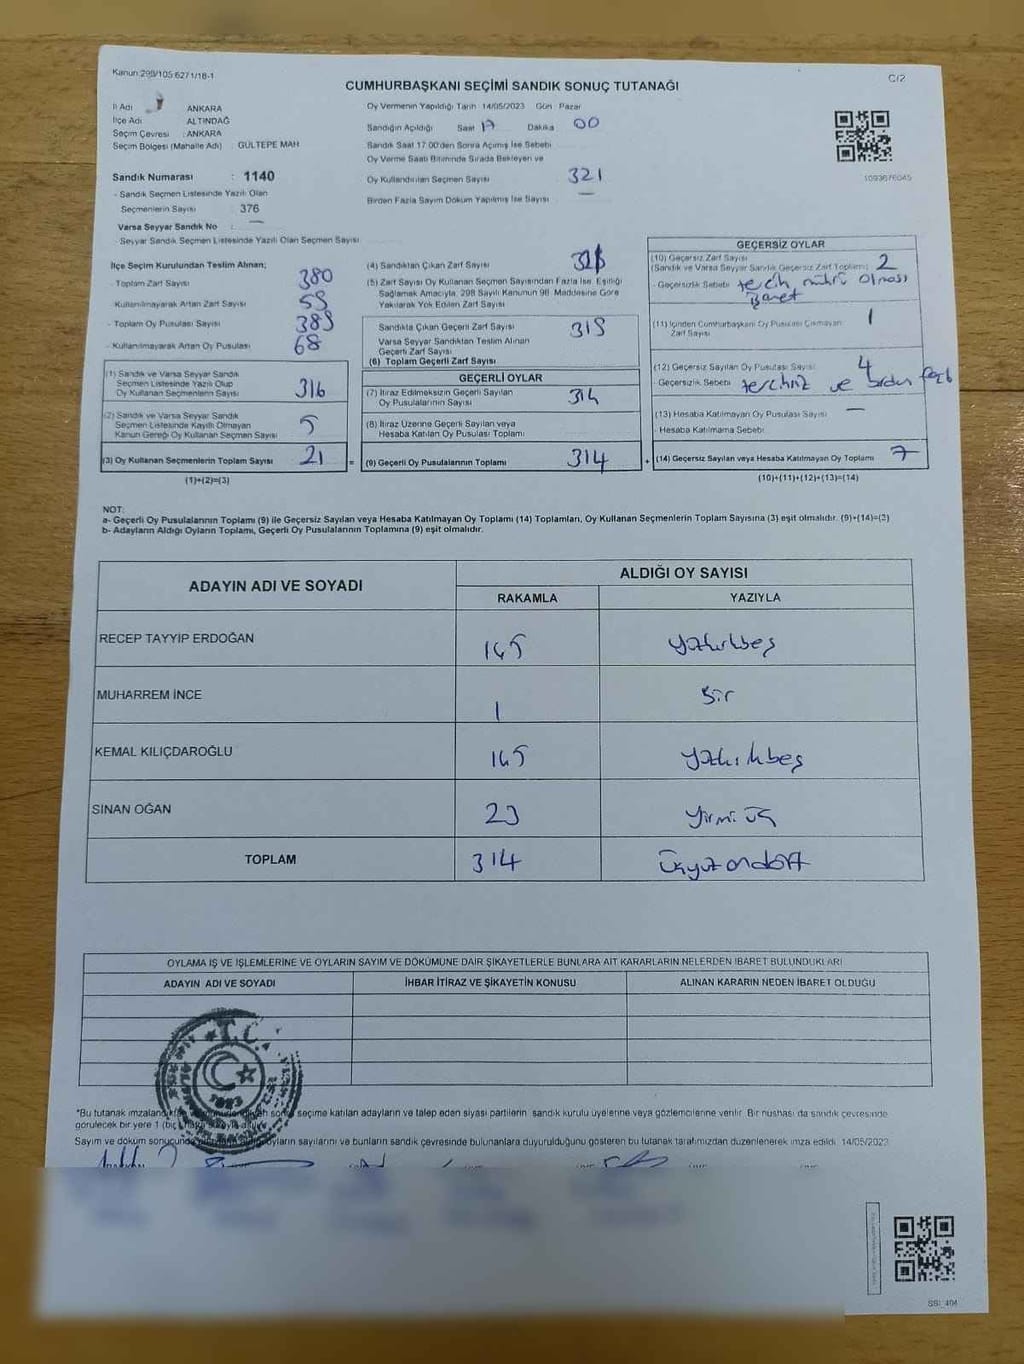 Kanun:298/105 6271/18-1
C/2
CUMHURBAŞKANI SEÇİMİ SANDIK SONUÇ TUTANAĞI
İl Adı ANKARA
İlçe Adı ALTINDAĞ
Seçim Çevresi : ANKARA
Seçim Bölgesi (Mahalle Adı) : GÜLTEPE MAH
Sandık Numarası : 1140
- Sandık Seçmen Listesinde Yazılı Olan
Seçmenlerin Sayısı 376
Varsa Seyyar Sandık No : —
- Seyyar Sandık Seçmen Listesinde Yazılı Olan Seçmen Sayısı
Oy Vermenin Yapıldığı Tarih 14/05/2023 Gün : Pazar
Sandığın Açıldığı Saat 17 Dakika 00
Sandık Saat 17.00'den Sonra Açılmış İse Sebebi
Oy Verme Saati Bitiminde Sırada Bekleyen ve
Oy Kullandırılan Seçmen Sayısı 321
Birden Fazla Sayım Döküm Yapılmış İse Sayısı —
1093676045
İlçe Seçim Kurulundan Teslim Alınan;
- Toplam Zarf Sayısı 380
- Kullanılmayarak Artan Zarf Sayısı 59
- Toplam Oy Pusulası Sayısı 389
- Kullanılmayarak Artan Oy Pusulası 68
(1) Sandık ve Varsa Seyyar Sandık
Seçmen Listesinde Yazılı Olup
Oy Kullanan Seçmenlerin Sayısı 316
(2) Sandık ve Varsa Seyyar Sandık
Seçmen Listesinde Kayıtlı Olmayan
Kanun Gereği Oy Kullanan Seçmen Sayısı 5
(3) Oy Kullanan Seçmenlerin Toplam Sayısı 21 =
(1)+(2)=(3)
(4) Sandıktan Çıkan Zarf Sayısı
(5) Zarf Sayısı Oy Kullanan Seçmen Sayısından Fazla İse, Eşitliği
Sağlamak Amacıyla, 298 Sayılı Kanunun 98. Maddesine Göre
Yakılarak Yok Edilen Zarf Sayısı
Sandıkta Çıkan Geçerli Zarf Sayısı 319
Varsa Seyyar Sandıktan Teslim Alınan
Geçerli Zarf Sayısı
(6) Toplam Geçerli Zarf Sayısı
GEÇERLİ OYLAR
(7) İtiraz Edilmeksizin Geçerli Sayılan
Oy Pusulalarının Sayısı 314
(8) İtiraz Üzerine Geçerli Sayılan veya
Hesaba Katılan Oy Pusulası Toplamı
(9) Geçerli Oy Pusulalarının Toplamı 314 +
GEÇERSİZ OYLAR
(10) Geçersiz Zarf Sayısı
(Sandık ve Varsa Seyyar Sandık Geçersiz Zarf Toplamı) 2
- Geçersizlik Sebebi tercih mührü olması
işaret
(11) İçinden Cumhurbaşkanı Oy Pusulası Çıkmayan
Zarf Sayısı 1
(12) Geçersiz Sayılan Oy Pusulası Sayısı 4
- Geçersizlik Sebebi tercihsiz ve birden fazla
(13) Hesaba Katılmayan Oy Pusulası Sayısı —
- Hesaba Katılmama Sebebi
(14) Geçersiz Sayılan veya Hesaba Katılmayan Oy Toplamı 7
(10)+(11)+(12)+(13)=(14)
NOT:
a- Geçerli Oy Pusulalarının Toplamı (9) ile Geçersiz Sayılan veya Hesaba Katılmayan Oy Toplamı (14) Toplamları, Oy Kullanan Seçmenlerin Toplam Sayısına (3) eşit olmalıdır. (9)+(14)=(3)
b- Adayların Aldığı Oyların Toplamı, Geçerli Oy Pusulalarının Toplamına (9) eşit olmalıdır.
ADAYIN ADI VE SOYADI ALDIĞI OY SAYISI
RAKAMLA YAZIYLA
RECEP TAYYİP ERDOĞAN 145 yüzkırkbeş
MUHARREM İNCE 1 Bir
KEMAL KILIÇDAROĞLU 145 yüzkırkbeş
SİNAN OĞAN 23 yirmi üç
TOPLAM 314 Üçyüzondört
OYLAMA İŞ VE İŞLEMLERİNE VE OYLARIN SAYIM VE DÖKÜMÜNE DAİR ŞİKAYETLERLE BUNLARA AİT KARARLARIN NELERDEN İBARET BULUNDUKLARI
ADAYIN ADI VE SOYADI İHBAR İTİRAZ VE ŞİKAYETİN KONUSU ALINAN KARARIN NEDEN İBARET OLDUĞU
T.C.
1923
*Bu tutanak imzalandıktan ve mühürlendikten sonra seçime katılan adayların ve talep eden siyasi partilerin sandık kurulu üyelerine veya gözlemcilerine verilir. Bir nüshası da sandık çevresinde
görülecek bir yere 1 (bir) hafta süreyle asılır.
Sayım ve döküm sonucunda oyların sayılarını ve bunların sandık çevresinde bulunanlara duyurulduğunu gösteren bu tutanak tarafımızdan düzenlenerek imza edildi. 14/05/2023
SSİ_404